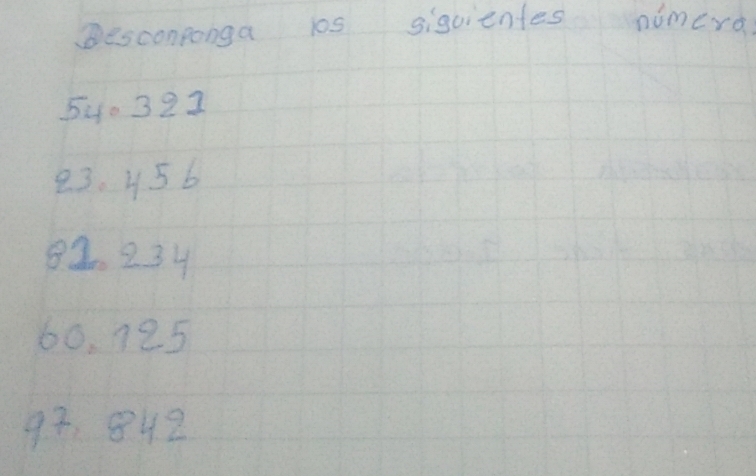 Desconponga los siguientes númera
54.321
23.456
81.234
60.125
97.842